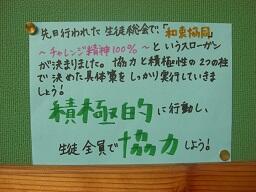 先日行われた生徒総会で「和衷協同」
～チャレンジ精神100％～というスローガン
が決まりました。協力と積極性の2つの柱
で決めた具体策をしっかり実行していきま
しょう!
積極的に行動し、
生徒全員で協力しよう!